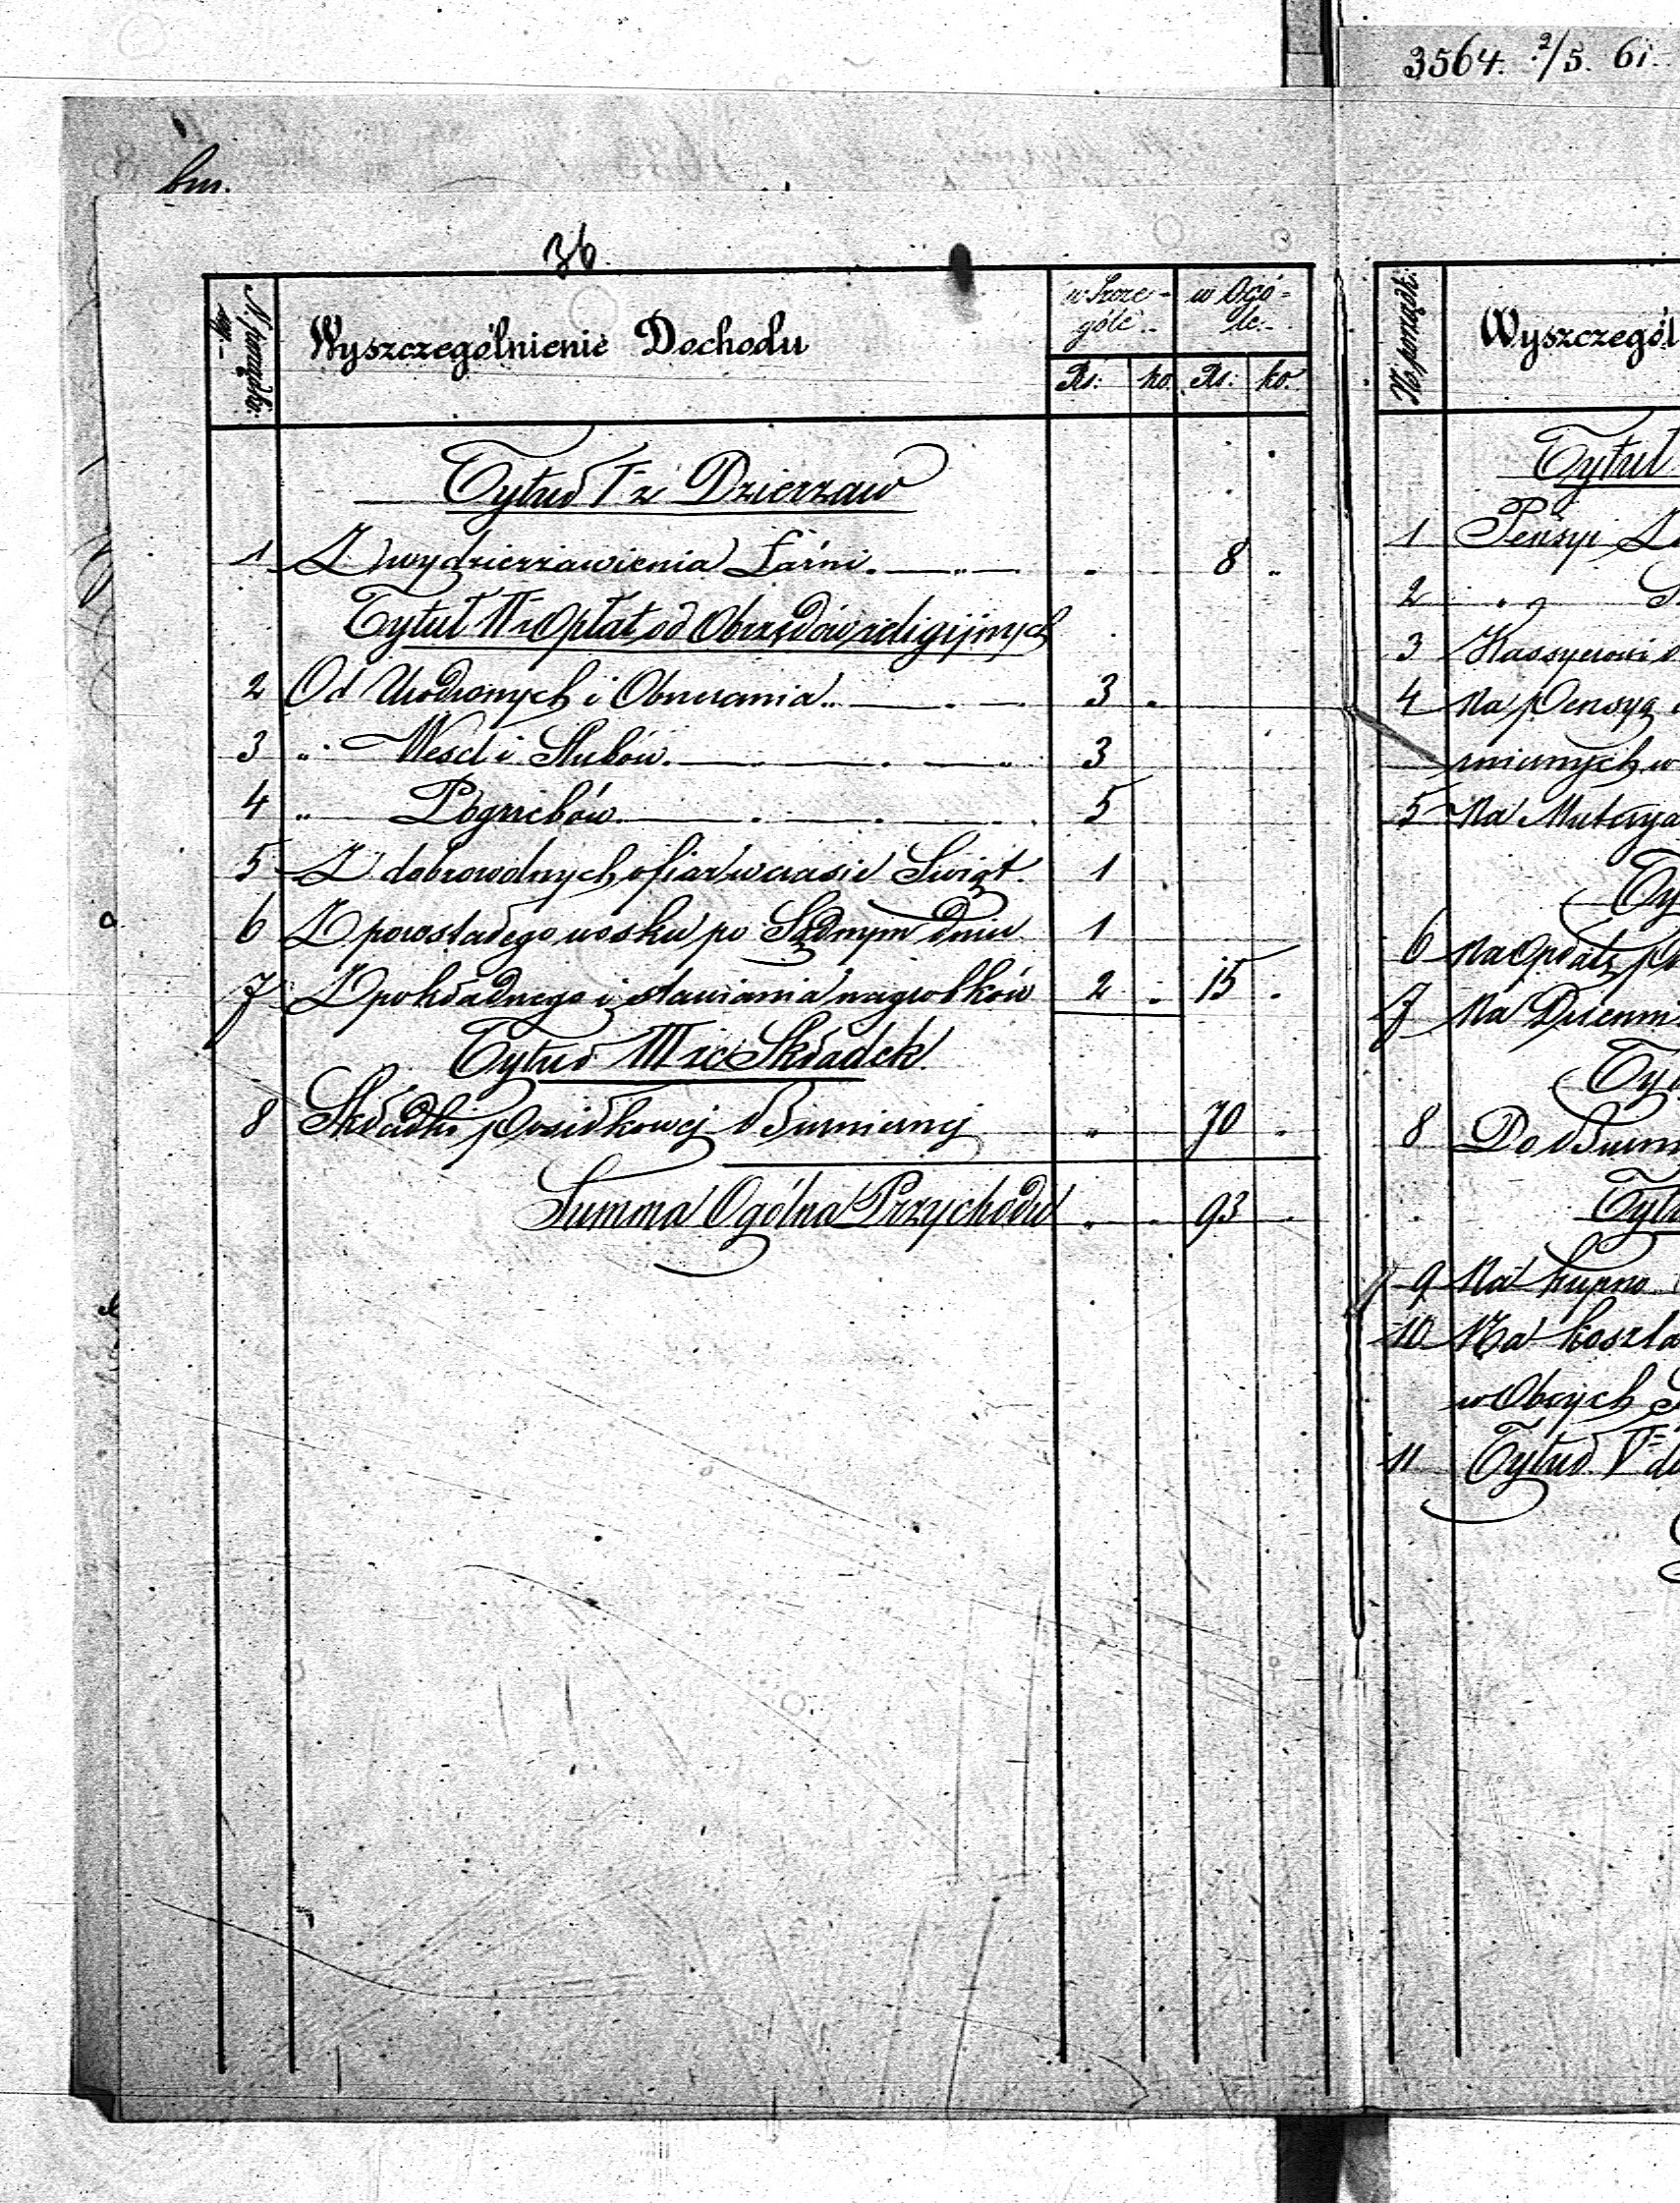 3564. 2/5. 61.
bm.
36.
N. porządko-
wy.
Wyszczególnienie Dochodu
w Szcze-
góle
w Ogó-
le.
Rs: ko. Rs: ko.
Tytuł I z Dzierzaw
1 Z wydzierzawienia Łaźni. 8
Tytuł II z Opłat od Obrzędów religijnych
2 Od Urodzonych i Obrzezania 3
3 " Wesel i Slubów 3
4 " Pogrzebów 5
5 Z dobrowolnych ofiar w czasie Swiąt. 1
6 Z powstałego wosku po Sądnym dniu 1
7 Z pokładnego i stawiania nagrobków 2 15
Tytuł III ze Składek
8 Składki posiłkowej 70
Summa Ogólna Przychodu 93
N. porządk.
Wyszczegól
Tytuł
1 Pensyi
2 "
3 Kassyerowi
4 Na Pensyą
5 Na Materya
6 Na Opłatę
7 Na
8 Do
9 Na kupno
10 Na koszta
w Obcych
11 Tytuł V